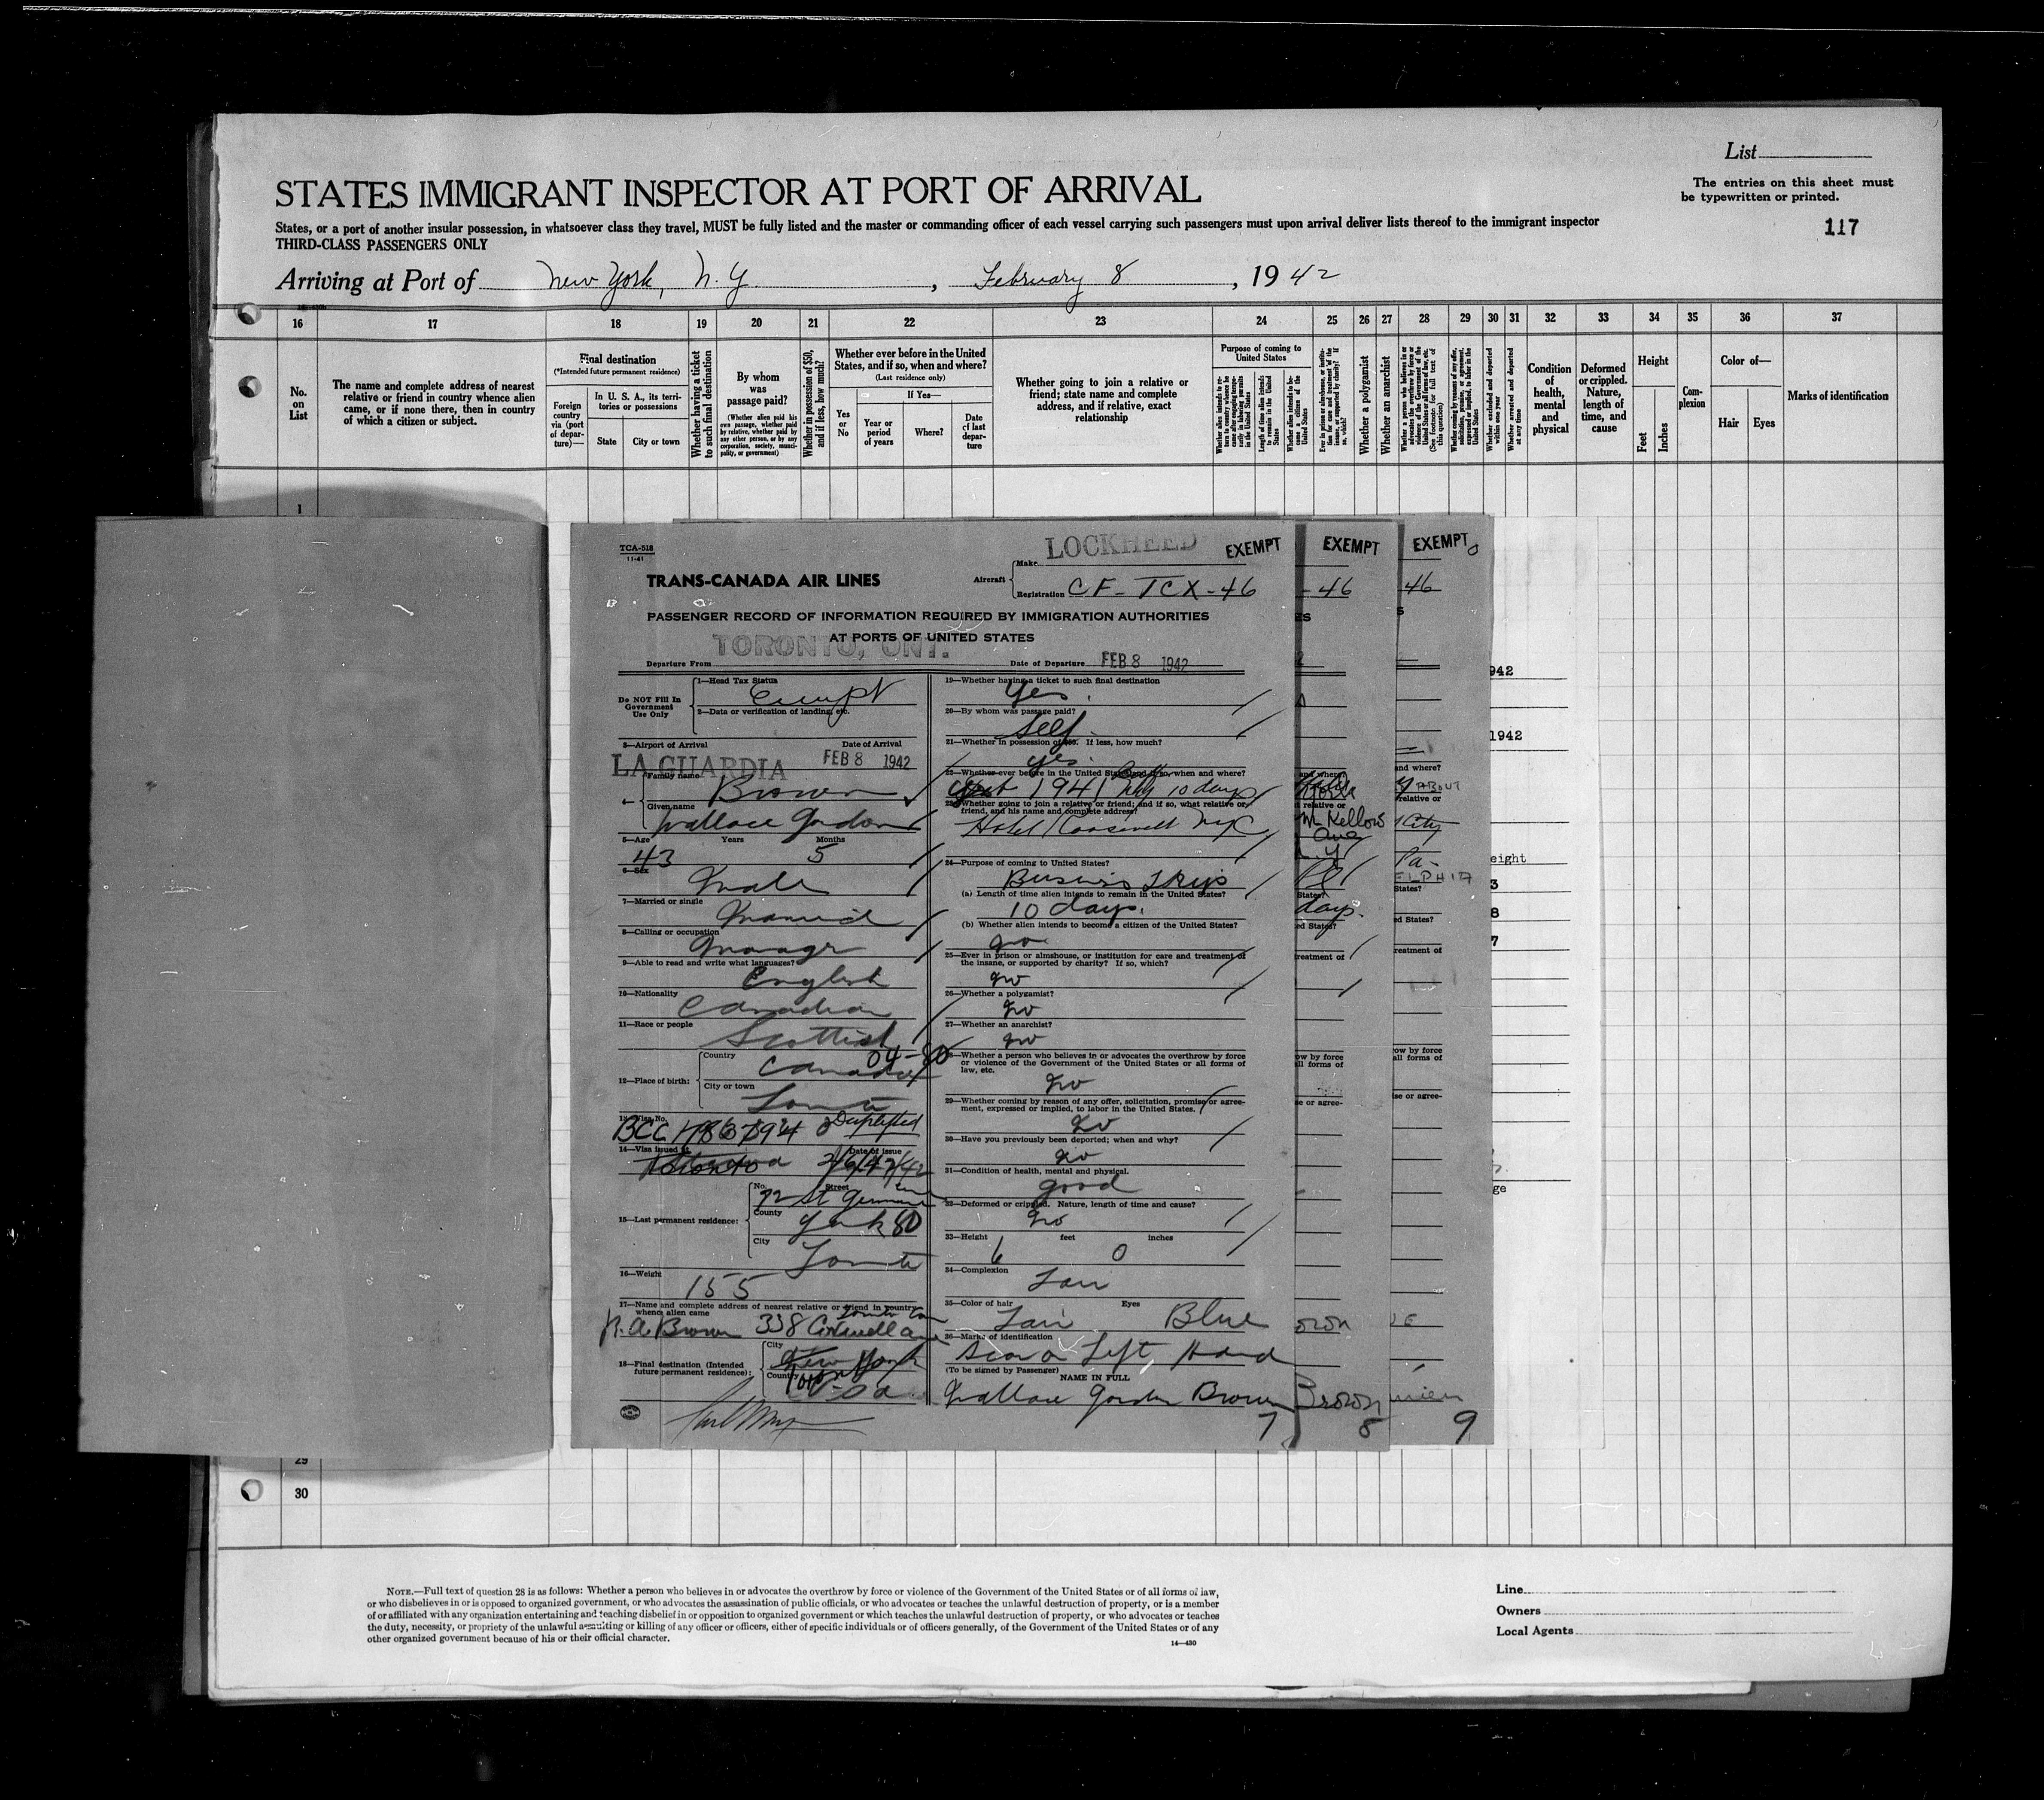 List
STATES IMMIGRANT INSPECTOR AT PORT OF ARRIVAL
The entries on this sheet must
be typewritten or printed.
States, or a port of another insular possession, in whatsoever class they travel, MUST be fully listed and the master or commanding officer of each vessel carrying such passengers must upon arrival deliver lists thereof to the immigrant inspector
THIRD-CLASS PASSENGERS ONLY
117
Arriving at Port of New York, N. Y. , February 8 , 1942
16 17 18 19 20 21 22 23 24 25 26 27 28 29 30 31 32 33 34 35 36 37
No. on List
The name and complete address of nearest
relative or friend in country whence alien
came, or if none there, then in country
of which a citizen or subject.
Final destination
(*Intended future permanent residence)
Foreign country via (port of departure)—
In U. S. A., its territories or possessions
State
City or town
Whether having a ticket to such final destination
By whom was passage paid?
(Whether alien paid his own passage, whether paid by relative, whether paid by any other person, or by any corporation, society, municipality, or government)
Whether in possession of $50, and if less, how much?
Whether ever before in the United
States, and if so, when and where?
(Last residence only)
Yes or No
If Yes—
Year or period of years
Where?
Date of last departure
Whether going to join a relative or
friend; state name and complete
address, and if relative, exact
relationship
Purpose of coming to
United States
Length of time alien intends to remain in the United States
Whether alien intends to become a citizen of the United States
Whether a polygamist
Whether an anarchist
Condition of health, mental and physical
Deformed or crippled. Nature, length of time, and cause
Height
Feet
Inches
Complexion
Color of—
Hair
Eyes
Marks of identification
1
TCA-518
11-41
TRANS-CANADA AIR LINES
Aircraft
Make LOCKHEED
EXEMPT
Registration CF-TCX-46
PASSENGER RECORD OF INFORMATION REQUIRED BY IMMIGRATION AUTHORITIES
AT PORTS OF UNITED STATES
Departure From TORONTO, ONT.
Date of Departure FEB 8 1942
Do NOT Fill In
Government
Use Only
1—Head Tax Status
Exempt
2—Data or verification of landing, etc.
3—Airport of Arrival
Date of Arrival
LA GUARDIA
FEB 8 1942
4—
Family name
Brown
Given name
Wallace Gordon
5—Age Years Months
43 5
6—Sex
Male
7—Married or single
Married
8—Calling or occupation
Manager
9—Able to read and write what languages?
English
10—Nationality
Canadian
11—Race or people
Scottish
12—Place of birth:
Country
Canada
04-80
City or town
Toronto
13—Visa No.
BCC
14—Visa issued at
Date of issue
15—Last permanent residence:
No. Street
72 St
County
York 80
City
Toronto
16—Weight
155
17—Name and complete address of nearest relative or friend in country
whence alien came
Brown 338
18—Final destination (Intended
future permanent residence):
City
New York
Country
19—Whether having a ticket to such final destination
Yes.
20—By whom was passage paid?
Self
21—Whether in possession of $50. If less, how much?
yes.
22—Whether ever before in the United States and if so, when and where?
1941 10 days
23—Whether going to join a relative or friend; and if so, what relative or
friend, and his name and complete address?
Hotel Roosevelt NYC
24—Purpose of coming to United States?
Business Trip
(a) Length of time alien intends to remain in the United States?
10 days.
(b) Whether alien intends to become a citizen of the United States?
No
25—Ever in prison or almshouse, or institution for care and treatment of
the insane, or supported by charity? If so, which?
No
26—Whether a polygamist?
No
27—Whether an anarchist?
No
28—Whether a person who believes in or advocates the overthrow by force
or violence of the Government of the United States or all forms of
law, etc.
No
29—Whether coming by reason of any offer, solicitation, promise or agree-
ment, expressed or implied, to labor in the United States.
No
30—Have you previously been deported; when and why?
No
31—Condition of health, mental and physical.
good
32—Deformed or crippled. Nature, length of time and cause?
No
33—Height feet inches
6 0
34—Complexion
Fair
35—Color of hair Eyes
Fair Blue
36—Marks of identification
Scar on Left Hand
(To be signed by Passenger)
NAME IN FULL
Wallace Gordon Brown
7
EXEMPT
-46
days.
Brown
8
EXEMPT
46
City
9
942
1942
eight
3
8
7
ge
29
30
NOTE.—Full text of question 28 is as follows: Whether a person who believes in or advocates the overthrow by force or violence of the Government of the United States or of all forms of law,
or who disbelieves in or is opposed to organized government, or who advocates the assassination of public officials, or who advocates or teaches the unlawful destruction of property, or is a member
of or affiliated with any organization entertaining and teaching disbelief in or opposition to organized government or which teaches the unlawful destruction of property, or who advocates or teaches
the duty, necessity, or propriety of the unlawful assaulting or killing of any officer or officers, either of specific individuals or of officers generally, of the Government of the United States or of any
other organized government because of his or their official character.
14—430
Line
Owners
Local Agents